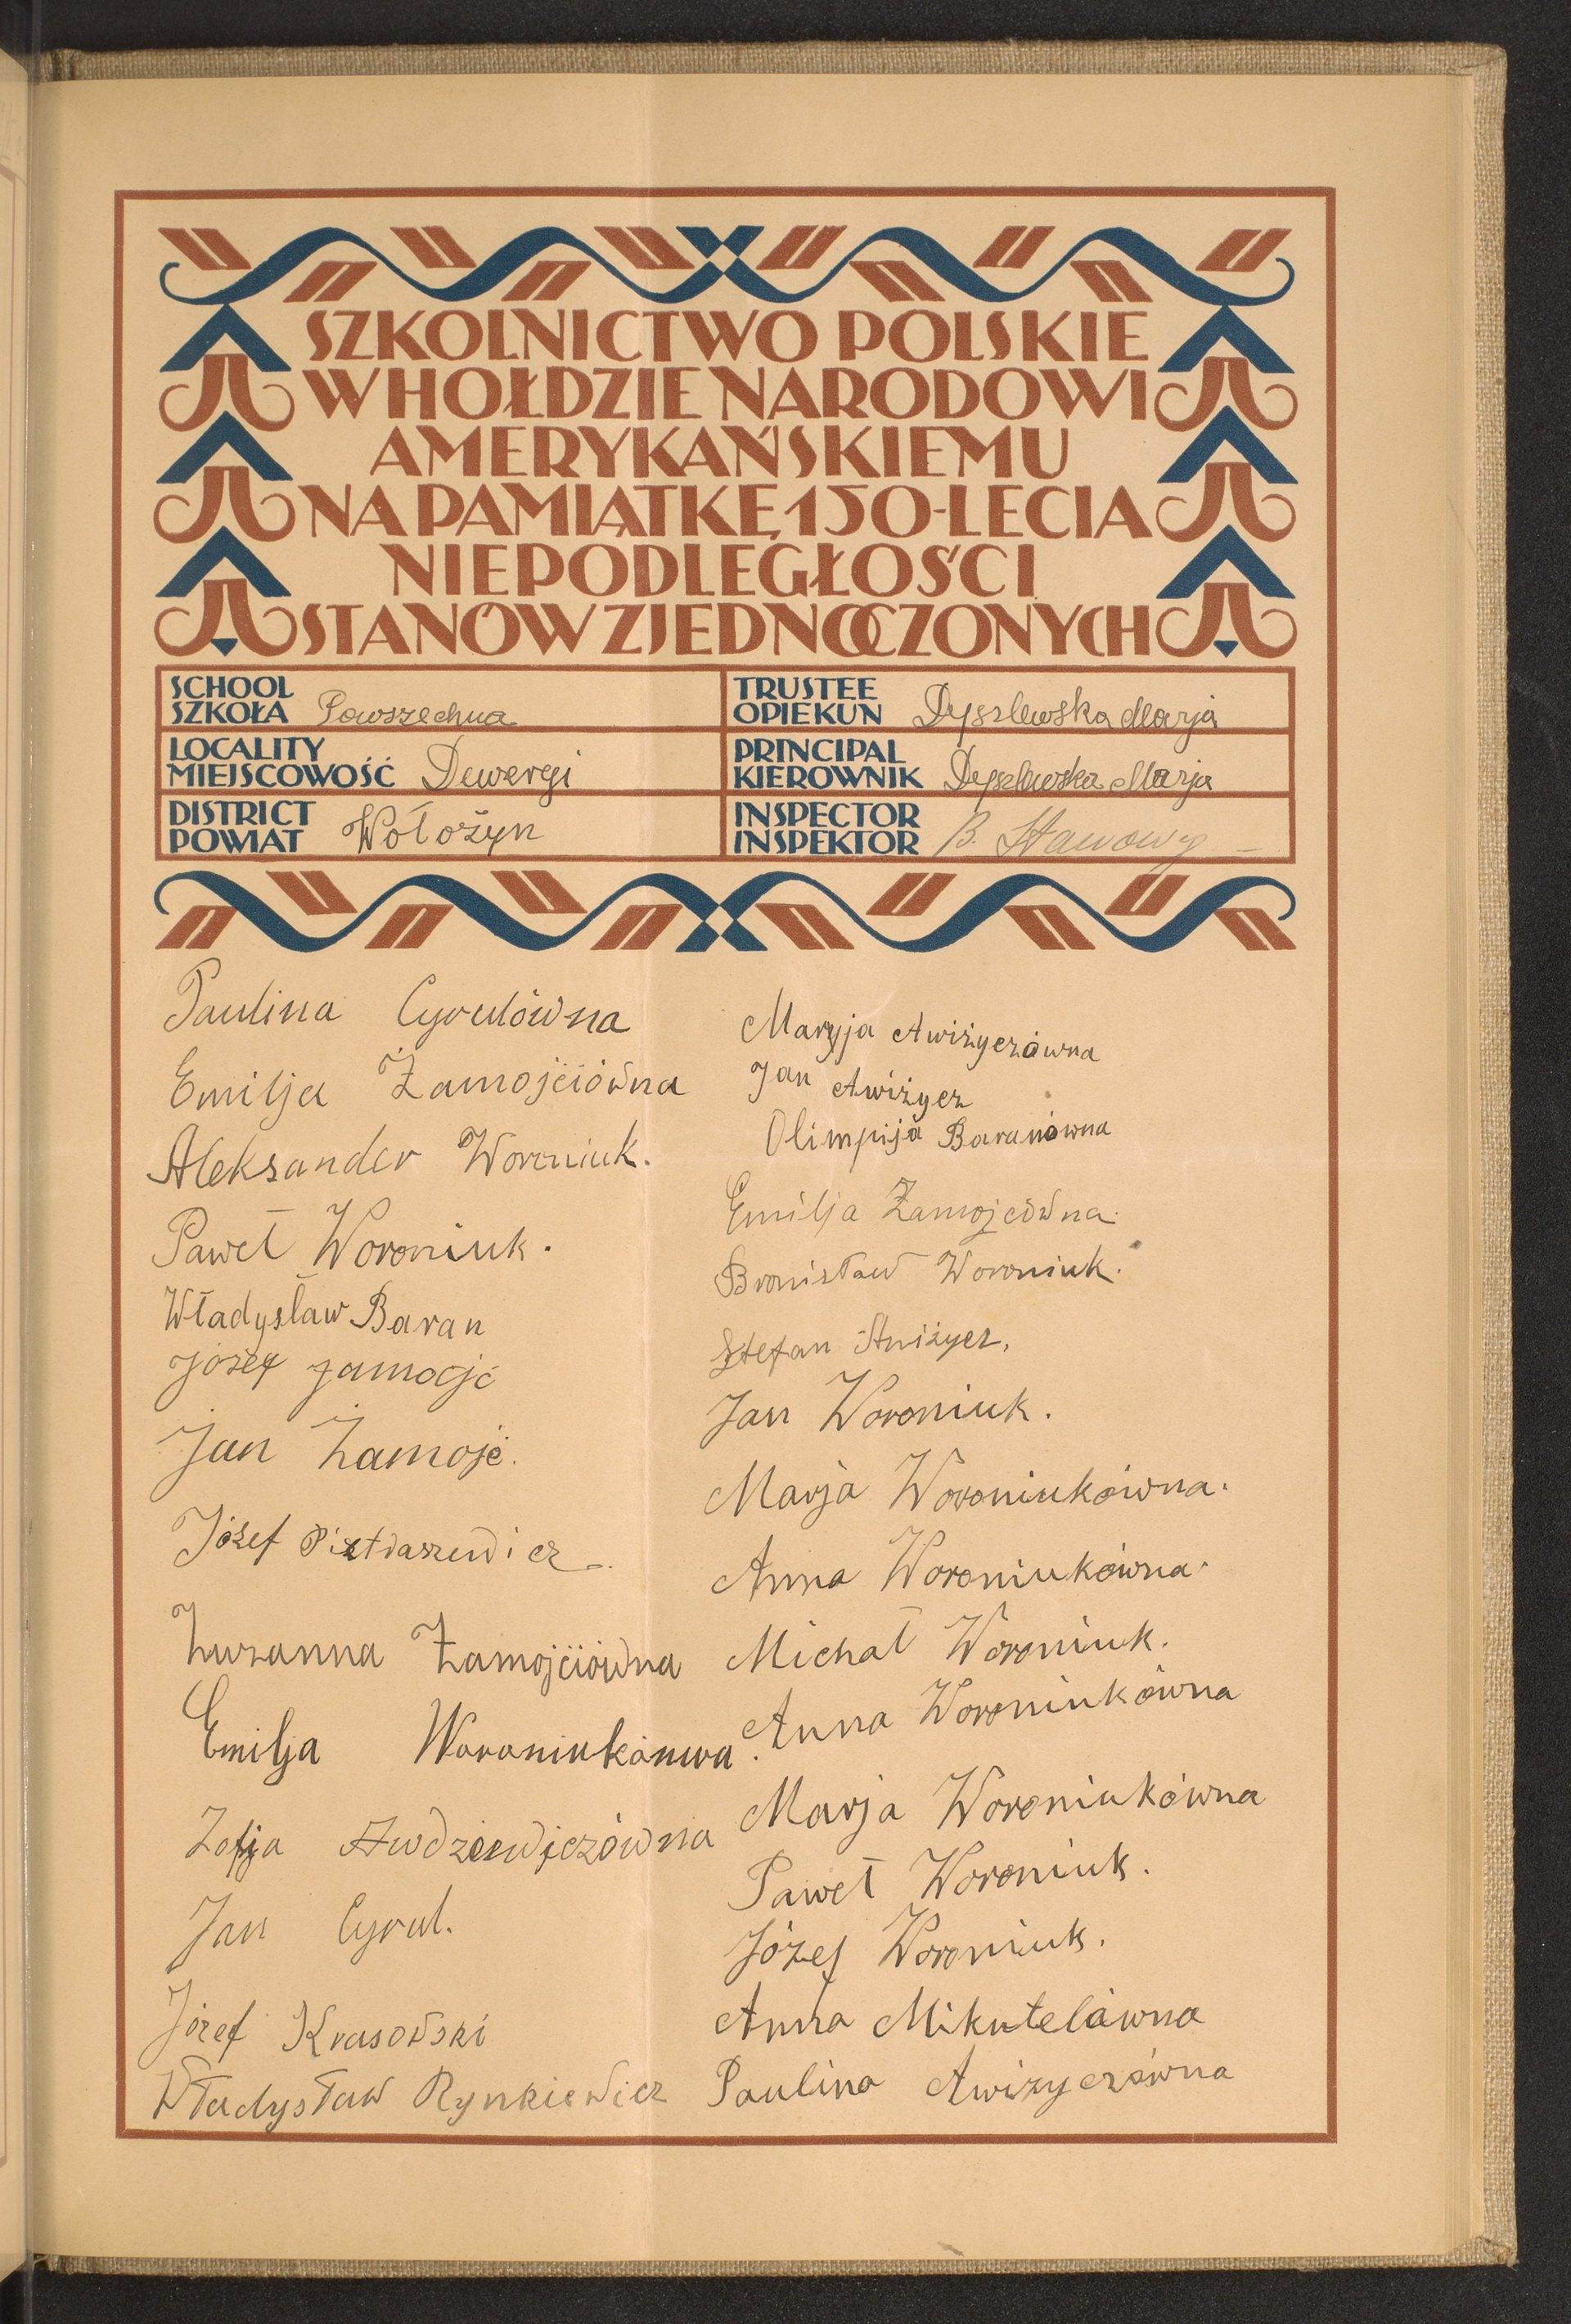 SZKOLNICTWO POLSKIE
W HOŁDZIE NARODOWI
AMERYKAŃSKIEMU
NA PAMIĄTKĘ 150-LECIA
NIEPODLEGŁOŚCI
STANÓW ZJEDNOCZONYCH
SCHOOL
SZKOŁA Powszechna
TRUSTEE
OPIEKUN Dyszlewska Marja
LOCALITY
MIEJSCOWOŚĆ Dewergi
PRINCIPAL
KIEROWNIK Dyszlewska Marja
DISTRICT
POWIAT Wołożyn
INSPECTOR
INSPEKTOR B. Stawowy
Paulina Cyrulówna
Emilja Żamojciówna
Aleksander Woroniuk.
Paweł Woroniuk.
Władysław Baran
Józef Zamojć
Jan Żamojć.
Józef
Zuzanna Żamojciówna
Emilja Woroniukónwa.
Zofja Awdziewiczówna
Jan Cyrul.
Józef Krasowski
Władysław Rynkiewicz
Maryja Awiżyczówna
Jan Awiżycz
Olimpija Baranówna
Emilja Żamojcówna.
Bronisław Woroniuk.
Stefan Awiżycz.
Jan Woroniuk.
Marja Woroniukówna.
Anna Woroniukówna.
Michał Woroniuk.
Anna Woroniukówna
Marja Woroniukówna
Paweł Woroniuk.
Józef Woroniuk.
Anna Mikutelówna
Paulina Awizyczówna